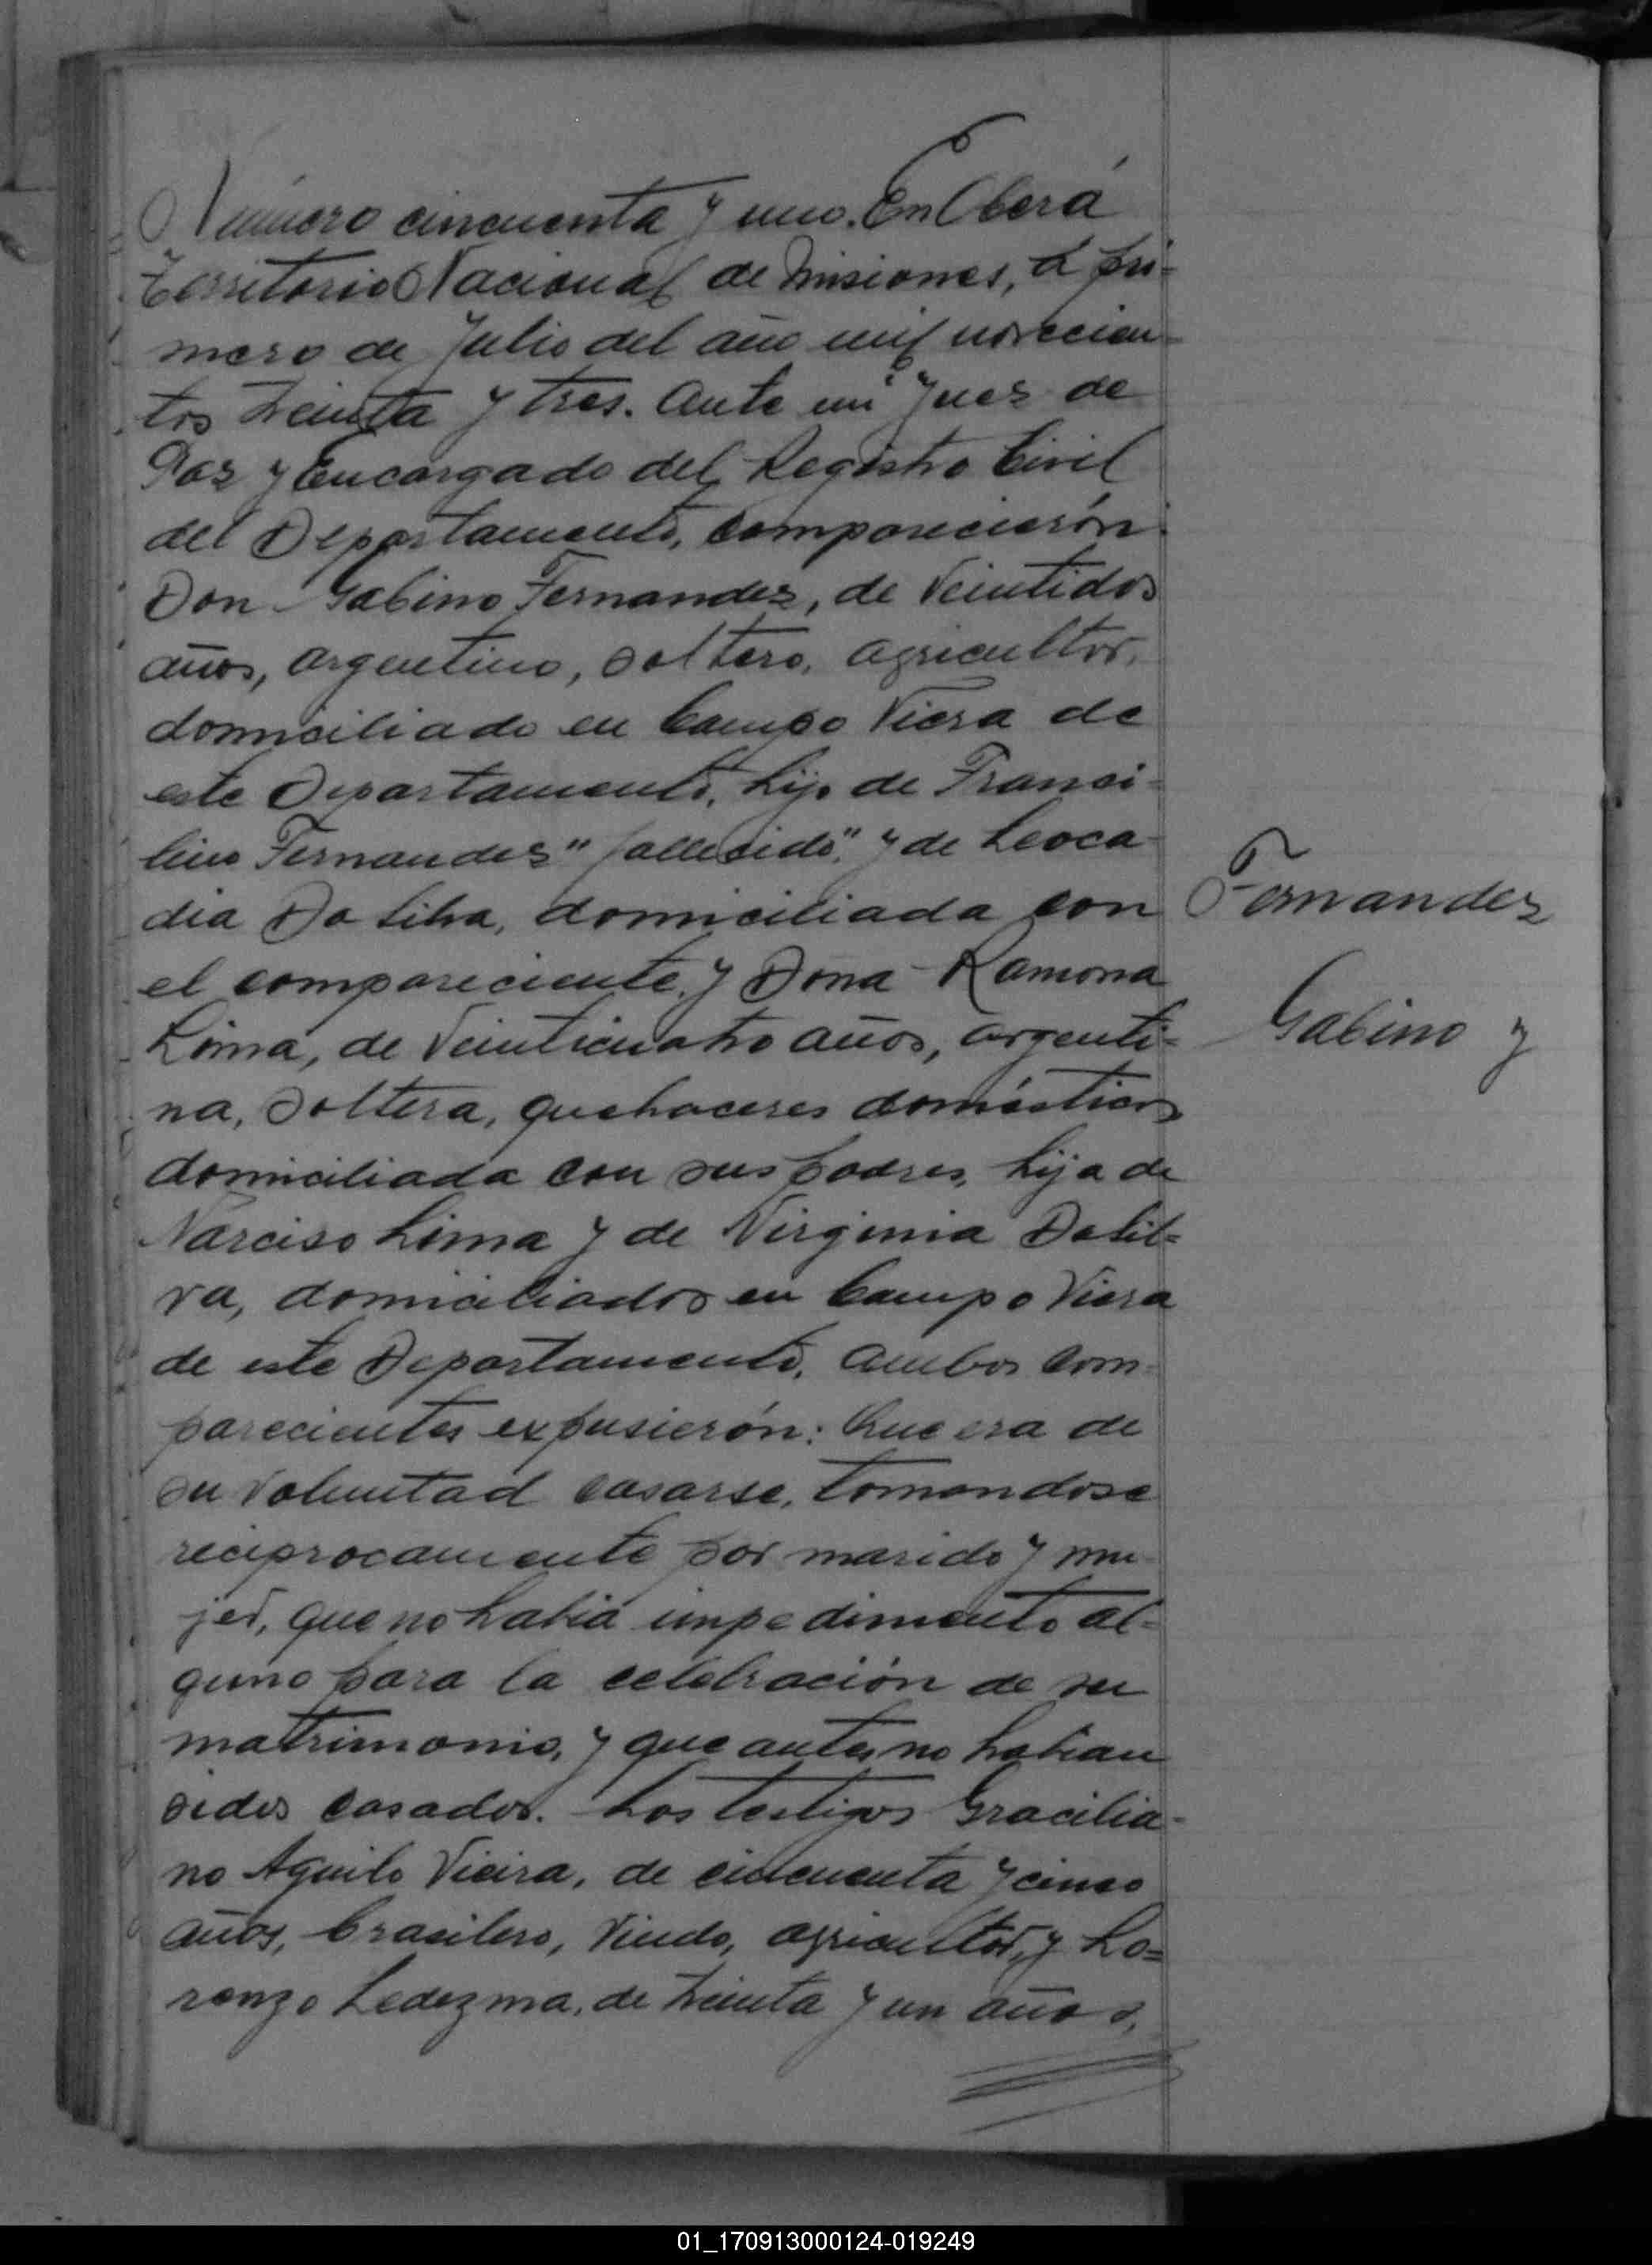 Número cincuenta y uno. En Oberá
Territorio Nacional de Misiones, a pri=
mero de Julio del año mil novecien=
tos treinta y tres. Ante mi Juez de
Paz y Encargado del Registro Civil
del Departamento, comparecierón:
Don Gabino Fernandez, de veintidos
años, argentino, soltero, agricultor,
domiciliado en Campo Viera de
este Departamento, hijo de Franci-
lino Fernandez "fallecido", y de Leoca-
dia Da Silva, domiciliada con
el compareciente, y Doña Ramona
Lima, de veinticuatro años, argenti=
na, soltera, quehaceres domésticos
domiciliada con sus padres, hija de
Narciso Lima y de Virginia Dasil=
va, domiciliados en Campo Viera
de este Departamento. Ambos com-
parecientes expusierón: Que era de
su voluntad casarse, tomandose
reciprocamente por marido y mu-
jer, que no habia impedimento al=
guno para la celebración de su
matrimonio, y que antes no habian
sidos casados. Los testigos Gracilia-
no Aguilo Vieira, de cincuenta y cinco
años, brasilero, viudo, agricultor, y Lo=
renzo Ledezma, de treinta y un años,
Fernandez
Gabino y
01_170913000124-019249